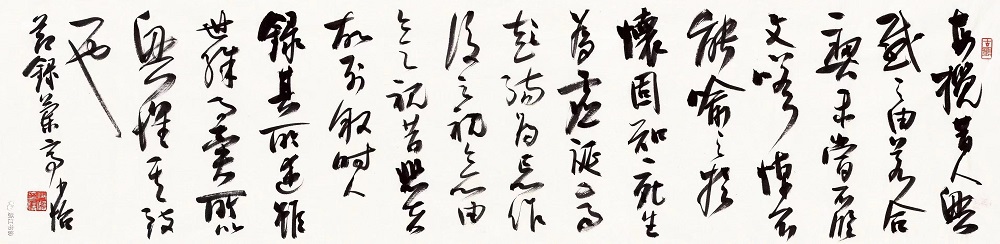 每攬昔人興
感之由若合
一契未嘗不臨
文嗟悼不
能喻之於
懷固知一死生
為虛誕齊
彭殤為妄作
後之視今亦由
今之視昔悲夫
故列敘時人
錄其所述雖
世殊事異所以
興懷其致
一也
節錄蘭亭